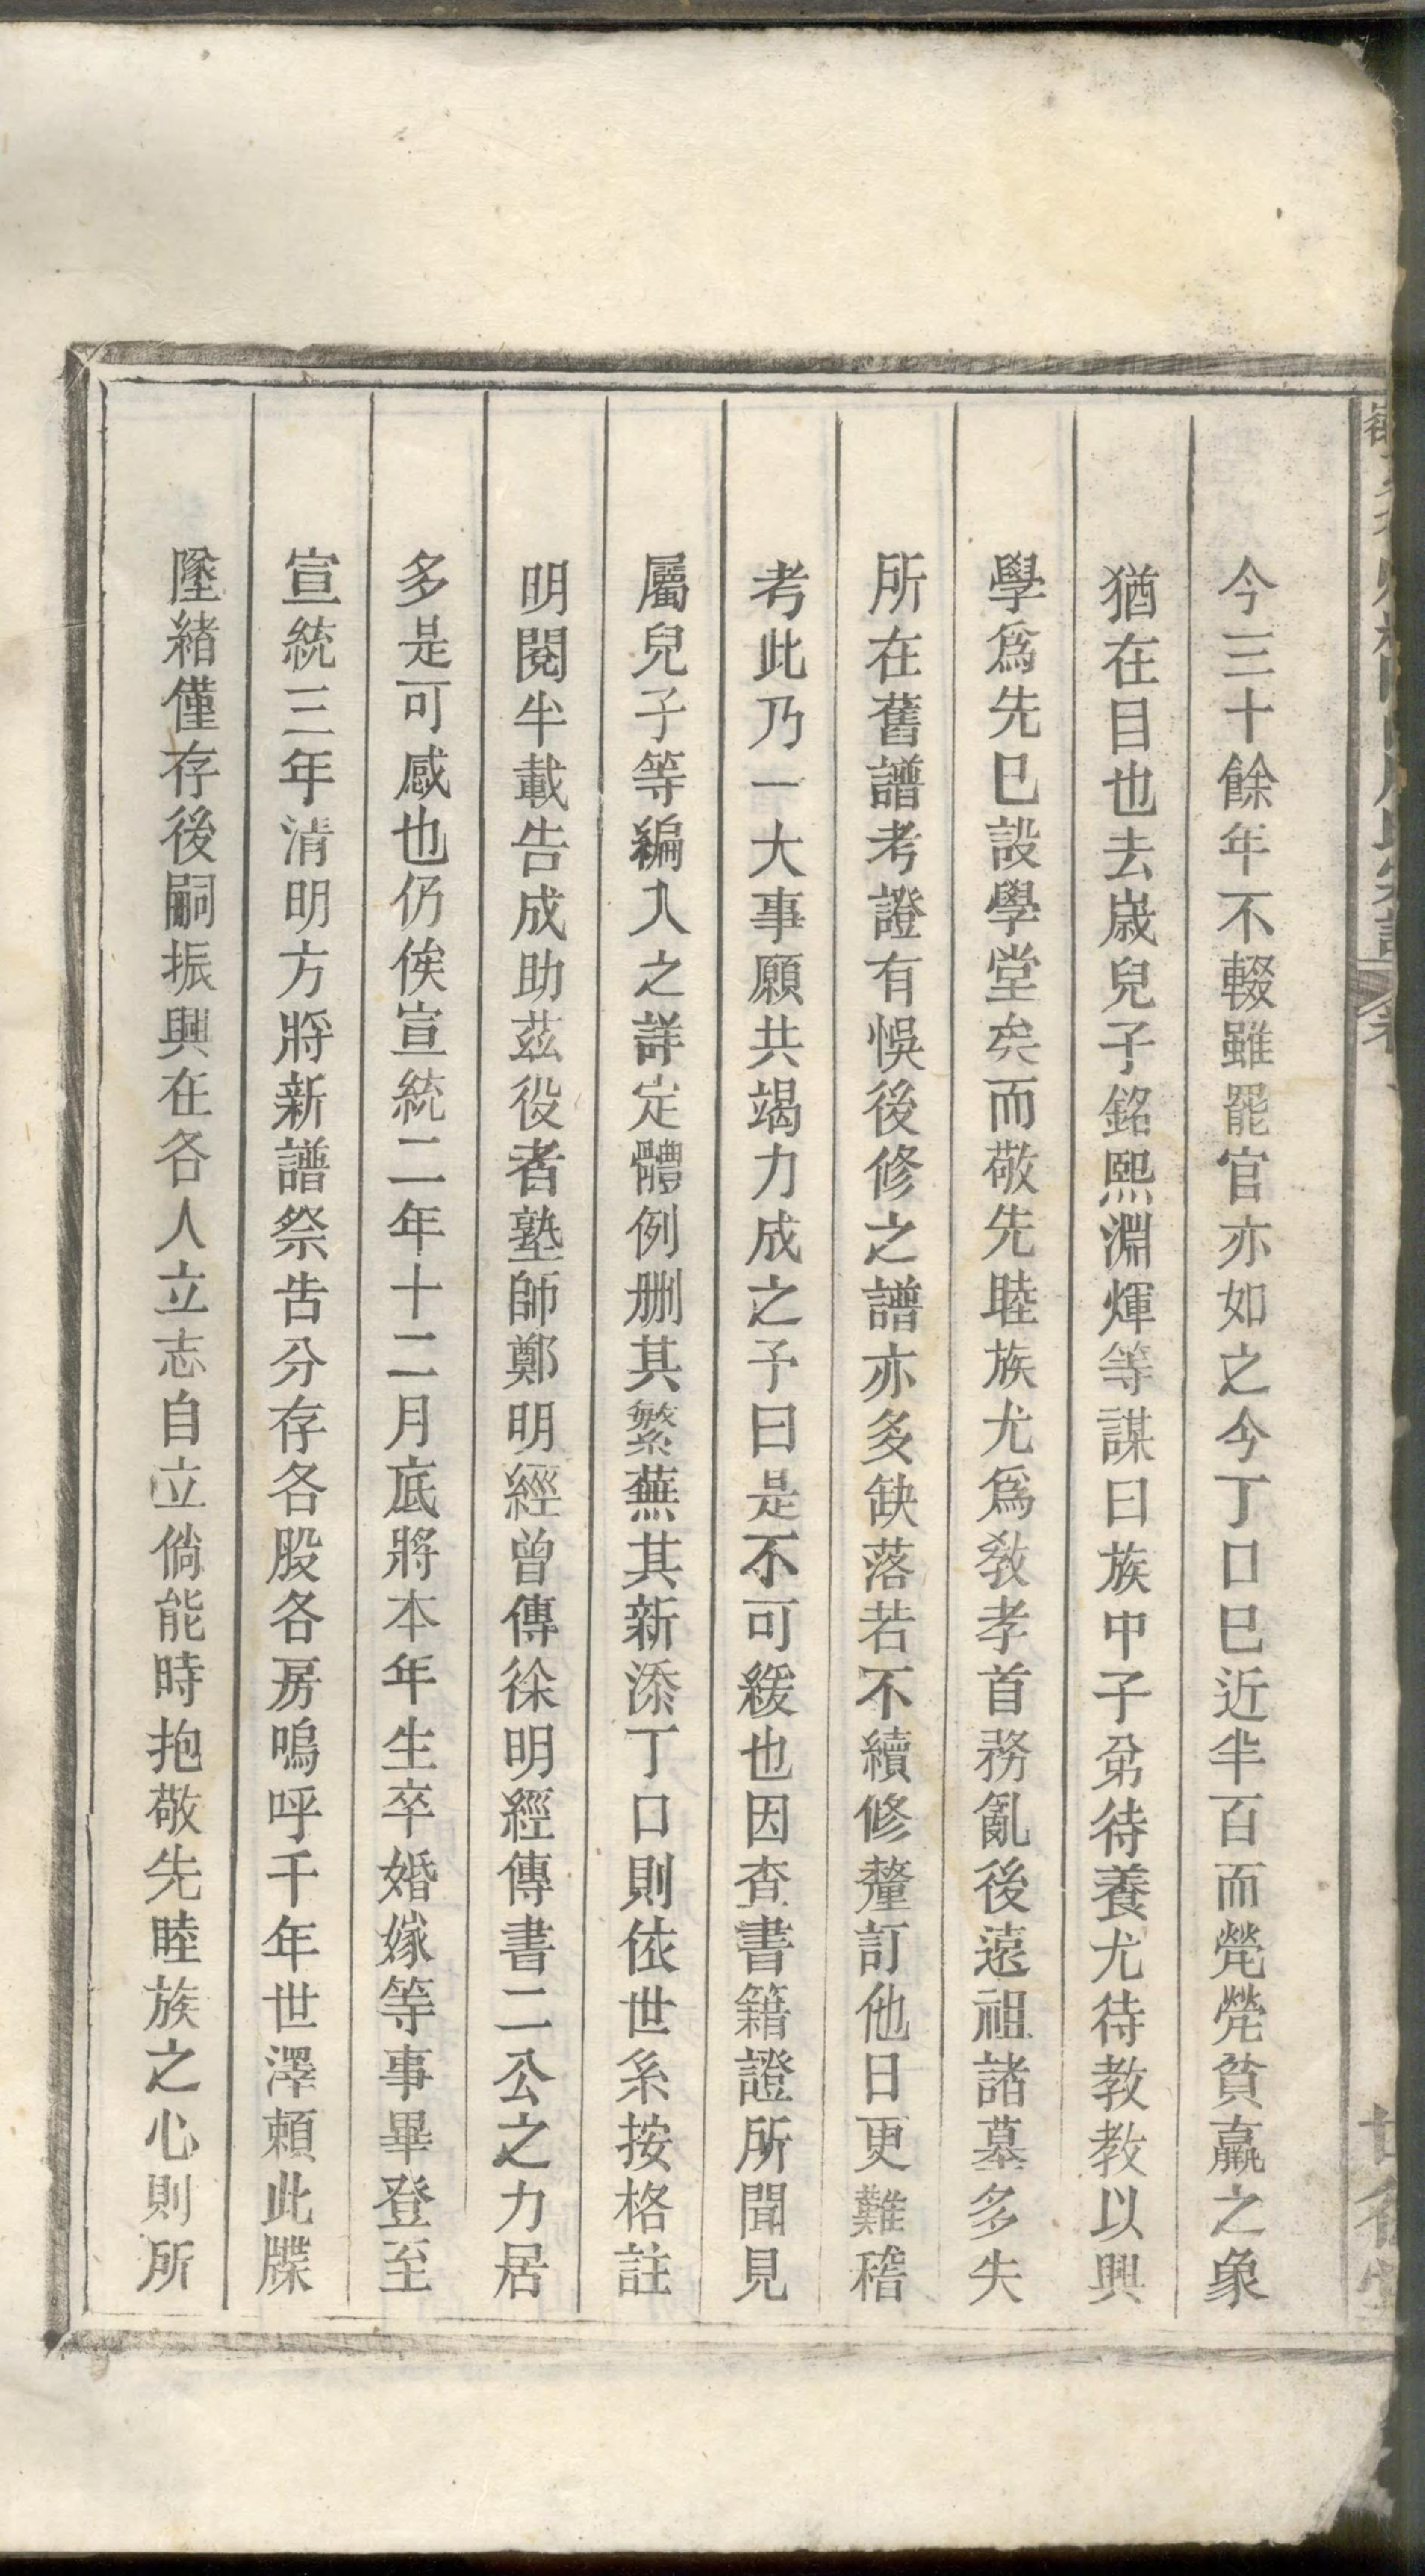 今三十餘年不輟雖罷官亦如之今丁口巳近半百而煢煢貧羸之象
猶在目也去嵗兒子銘熙淵煇等謀曰族中子弟待養尤待教教以興
學爲先巳設學堂矣而敬先睦族尤爲敎孝首務亂後遠祖諸墓多失
所在舊譜考證有悞後修之譜亦多缺落若不續修釐訂他日更難稽
考此乃一大事願共竭力成之予曰是不可緩也因査書籍證所聞見
屬兒子等編入之詳定體例刪其繁蕪其新添丁口則依世系按格註
明閱半載告成助茲役者塾師鄭明經曾傳徐明經傳書二公之力居
多是可感也仍俟宣統二年十二月底將本年生卒婚嫁等事畢登至
宣統三年清明方將新譜祭告分存各股各房嗚呼千年世澤賴此牒
墜緒僅存後嗣振興在各人立志自立倘能時抱敬先睦族之心則所